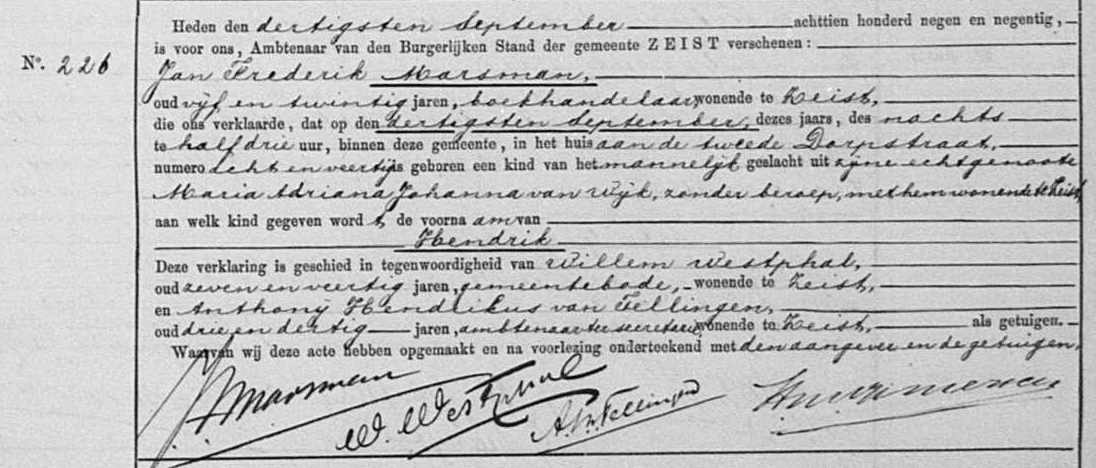 Heden den dertigsten September achttien honderd negen en negentig,
is voor ons, Ambtenaar van den Burgerlijken Stand der gemeente ZEIST verschenen:
No. 226
Jan Frederik Marsman,
oud vijf en twintig jaren, boekhandelaar, wonende te Zeist,
die ons verklaarde, dat op den dertigsten September, dezes jaars, des nachts
te half drie uur, binnen deze gemeente, in het huis aan de tweede Dorpstraat,
numero acht en veertig geboren een kind van het mannelijk geslacht uit zijne echtgenoote
Maria Adriana Johanna van Wijk, zonder beroep, met hem wonende te Zeist,
aan welk kind gegeven wordt, de voornaam van
Hendrik
Deze verklaring is geschied in tegenwoordigheid van Willem Westphal,
oud zeven en veertig jaren, gemeentebode, wonende te Zeist,
en Anthony Hendrikus van Tellingen,
oud drie en dertig jaren, ambtenaar ter secretarie, wonende te Zeist, als getuigen.
Waarvan wij deze acte hebben opgemaakt en na voorlezing onderteekend met den aangever en de getuigen.
JFMarsman W. Westphal A.H.v.Tellingen